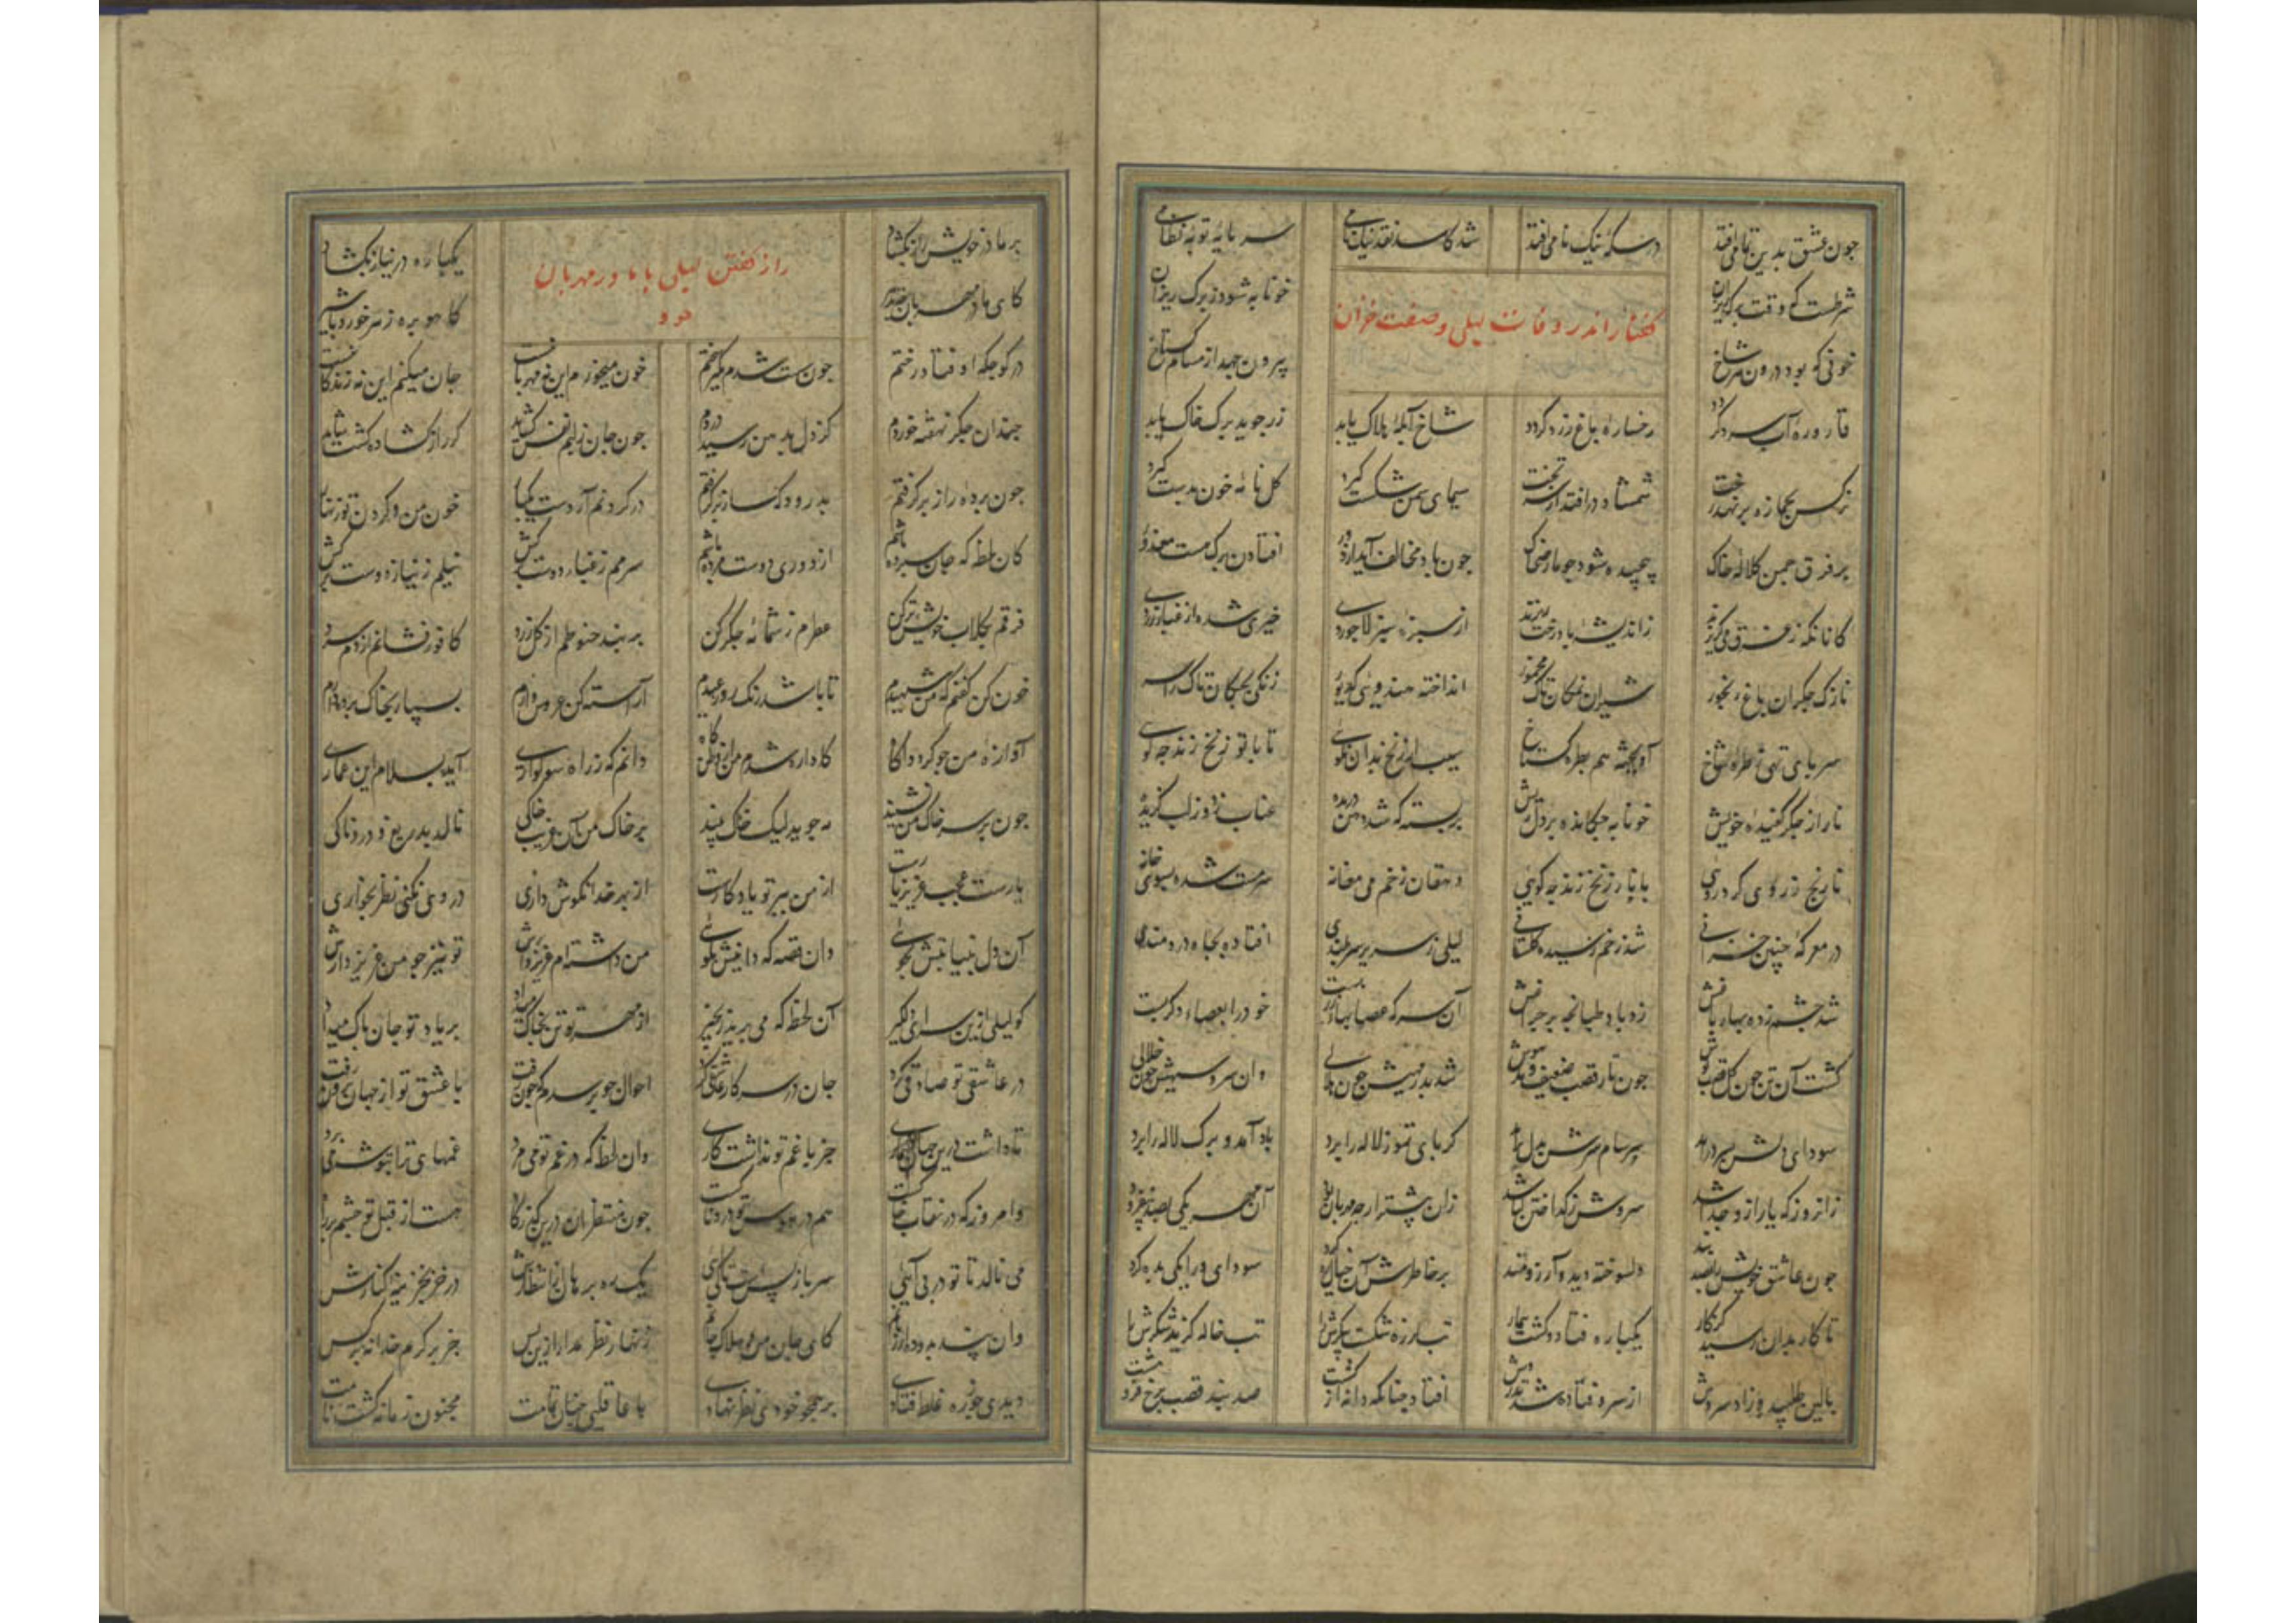 چون عشق بدین تمامی افتد در سکهٔ نیک نامی افتد شد کاسد نقد نیک نامی سرمایهٔ توبه نظامی
گفتار اندر وفات لیلی و صفت خزان
شرطست که وقت برگ ریزان خونابه شود ز برگ ریزان
خونی که بود درون هر شاخ بیرون جهد از مسام سوراخ
قارورهٔ آب سرد گردد رخسارهٔ باغ زرد گردد شاخ آبلهٔ هلاک یابد زر جوید برگ خاک یابد
نرگس بجمازه بر نهد رخت شمشاد در افتد از سر تخت سیمای سمن شکست گیرد گل نامهٔ خون بدست گیرد
بر فرق چمن کلالهٔ خاک پیچیده شود چو مار ضحاک چون باد مخالف آید از دور افتادن برگ هست معذور
کانانکه ز غرق می گریزند ز اندیشهٔ باد رخت ریزند از سبزه سبز لاجوردی خیری شده از غبار زردی
نازک جگران باغ رنجور شیرین نمکان تاک مخمور انداخته هندوی کدیور زنگی بچگان تاک را سر
سرهای تهی ز طرهٔ شاخ آویخته هم بطرهٔ کاخ سیب از زنخ بدان نگونی تا با تو زنخ زند چه گونی
نار از جگر کفیدهٔ خویش خونابه چکانده بر دل ریش بر پسته که شد دهن دریده عناب ز دور لب گزیده
نارنج ز روی کرد روی با نار زنخ زند چه گوئی دهقان ز خم می مغانه سرمست شده بسوی خانه
در معرکهٔ چنین خزانی شد زخم رسیده گلستانی لیلی ز سریر سر بلندی افتاده بچاه دردمندی
شد چشم زده بهار باغش زد باد طپانچه بر چراغش آن سر که عصابهای زر بست خود را بعصابه دگر بست
گشت آن تن چون گل قصب پوش چون تار قصب ضعیف و بیهوش شد بدر مهیش چون هلالی وان سرو سهیش چون خلالی
سودای دلش بسر در آمد سرسام سرش بدل بر آمد گرمای تموز لاله را برد باد آمد و برگ لاله را برد
زانروز که یار ازو جدا شد سروش ز گداختن گیا شد زان پیشتر ار چه مهربان بود آن مهر یکی بصد بیفزود
چون عاشق خویش را بصد بند دلسوخته دید و آرزومند بر خاطرش آن خیال ره کرد سودای ورا یکی بده کرد
تا کار بدان رسید کز کار یکباره فتاد و گشت بیمار تب لرزه شکست پیکرش را تب خاله گزید شکرش را
بالین طلبید زاد سروش از سرو فتاده شد تذروش افتاد چنانکه دانه از کشت صد بند قصب برخ فرو هشت
بر مادر خویش راز بگشاد یکباره در نیاز بگشاد
راز گفتن لیلی با مادر مهربان خود
کای مادر مهربان چه تدبیر کاهو بره زهر خورد با شیر
در کوچگه اوفتاد رختم چون سست شدم مگیر سختم خون میخورم این چه مهربانیست جان میکنم این نه زندگانیست
چندان جگر نهفته خوردم کز دل بدهن رسید دردم چون جان ز لبم نفس گشاید گر راز گشاده گشت شاید
چون پرده ز راز بر گرفتم بدرود که راه بر گرفتم در گردنم آر دست یکبار خون من و گردن تو زنهار
کان لحظه که جان سپرده باشم از دوری دوست مرده باشم سرمم ز غبار دوست برکش نیلم ز نیاز دوست برکش
فرقم بگلاب خویش تر کن عطرم ز شمامهٔ جگر کن بر بند حنوطم از گل زرد کافور فشانم از دم سرد
خون کن کفنم که من شهیدم تا باشد رنگ روز عیدم آراسته کن عروس وارم بسپار بخاک پرده دارم
آوارهٔ من چو گردد آگاه کاواره شدم من از وطن گاه دانم که ز راه سوگواری آید بسلام این عماری
چون بر سر خاک من نشیند مه جوید لیک خاک بیند بر خاک من آن غریب خاکی نالد بدریغ و دردناکی
یارست عجب عزیز یارست از من بر تو یادگارست از بهر خدا نکوش داری در وی نکنی نظر بخواری
آن دل که نیابیش بجوئی وان قصه که دانیش بگوئی من داشته ام عزیز وارش تو نیز چو من عزیز دارش
گو لیلی ازین سرای دلگیر آن لحظه که می برید زنجیر از مهر تو تن بخاک میداد بر یاد تو جان پاک میداد
در عاشقی تو صادقی کرد جان در سر کار عاشقی کرد احوال چه پرسیم که چون رفت با عشق تو از جهان برون رفت
تا داشت درین جهان شماری جز با غم تو نداشت کاری وان لحظه که در غم تو می مرد غمهای ترا بتوشه می برد
وامروز که در نقاب خاکست هم در هوس تو دردناکست چون منتظران درین گذرگاه هست از قبل تو چشم بر راه
می نالد تا تو در پی آئی سر باز پس است تا کی آئی یک ره برهان از انتظارش در خز بخزینهٔ کنارش
وان پند که بود راز کای جان من و هلاک جانم زنهار نظر مدار ازین پس جز بر کرم خدا نه بر کس
دیدی خود را غلط فتادی بر عجز خودی نظر نهادی با عاقلی چنان تمامت مجنون زمانه گشت نامت